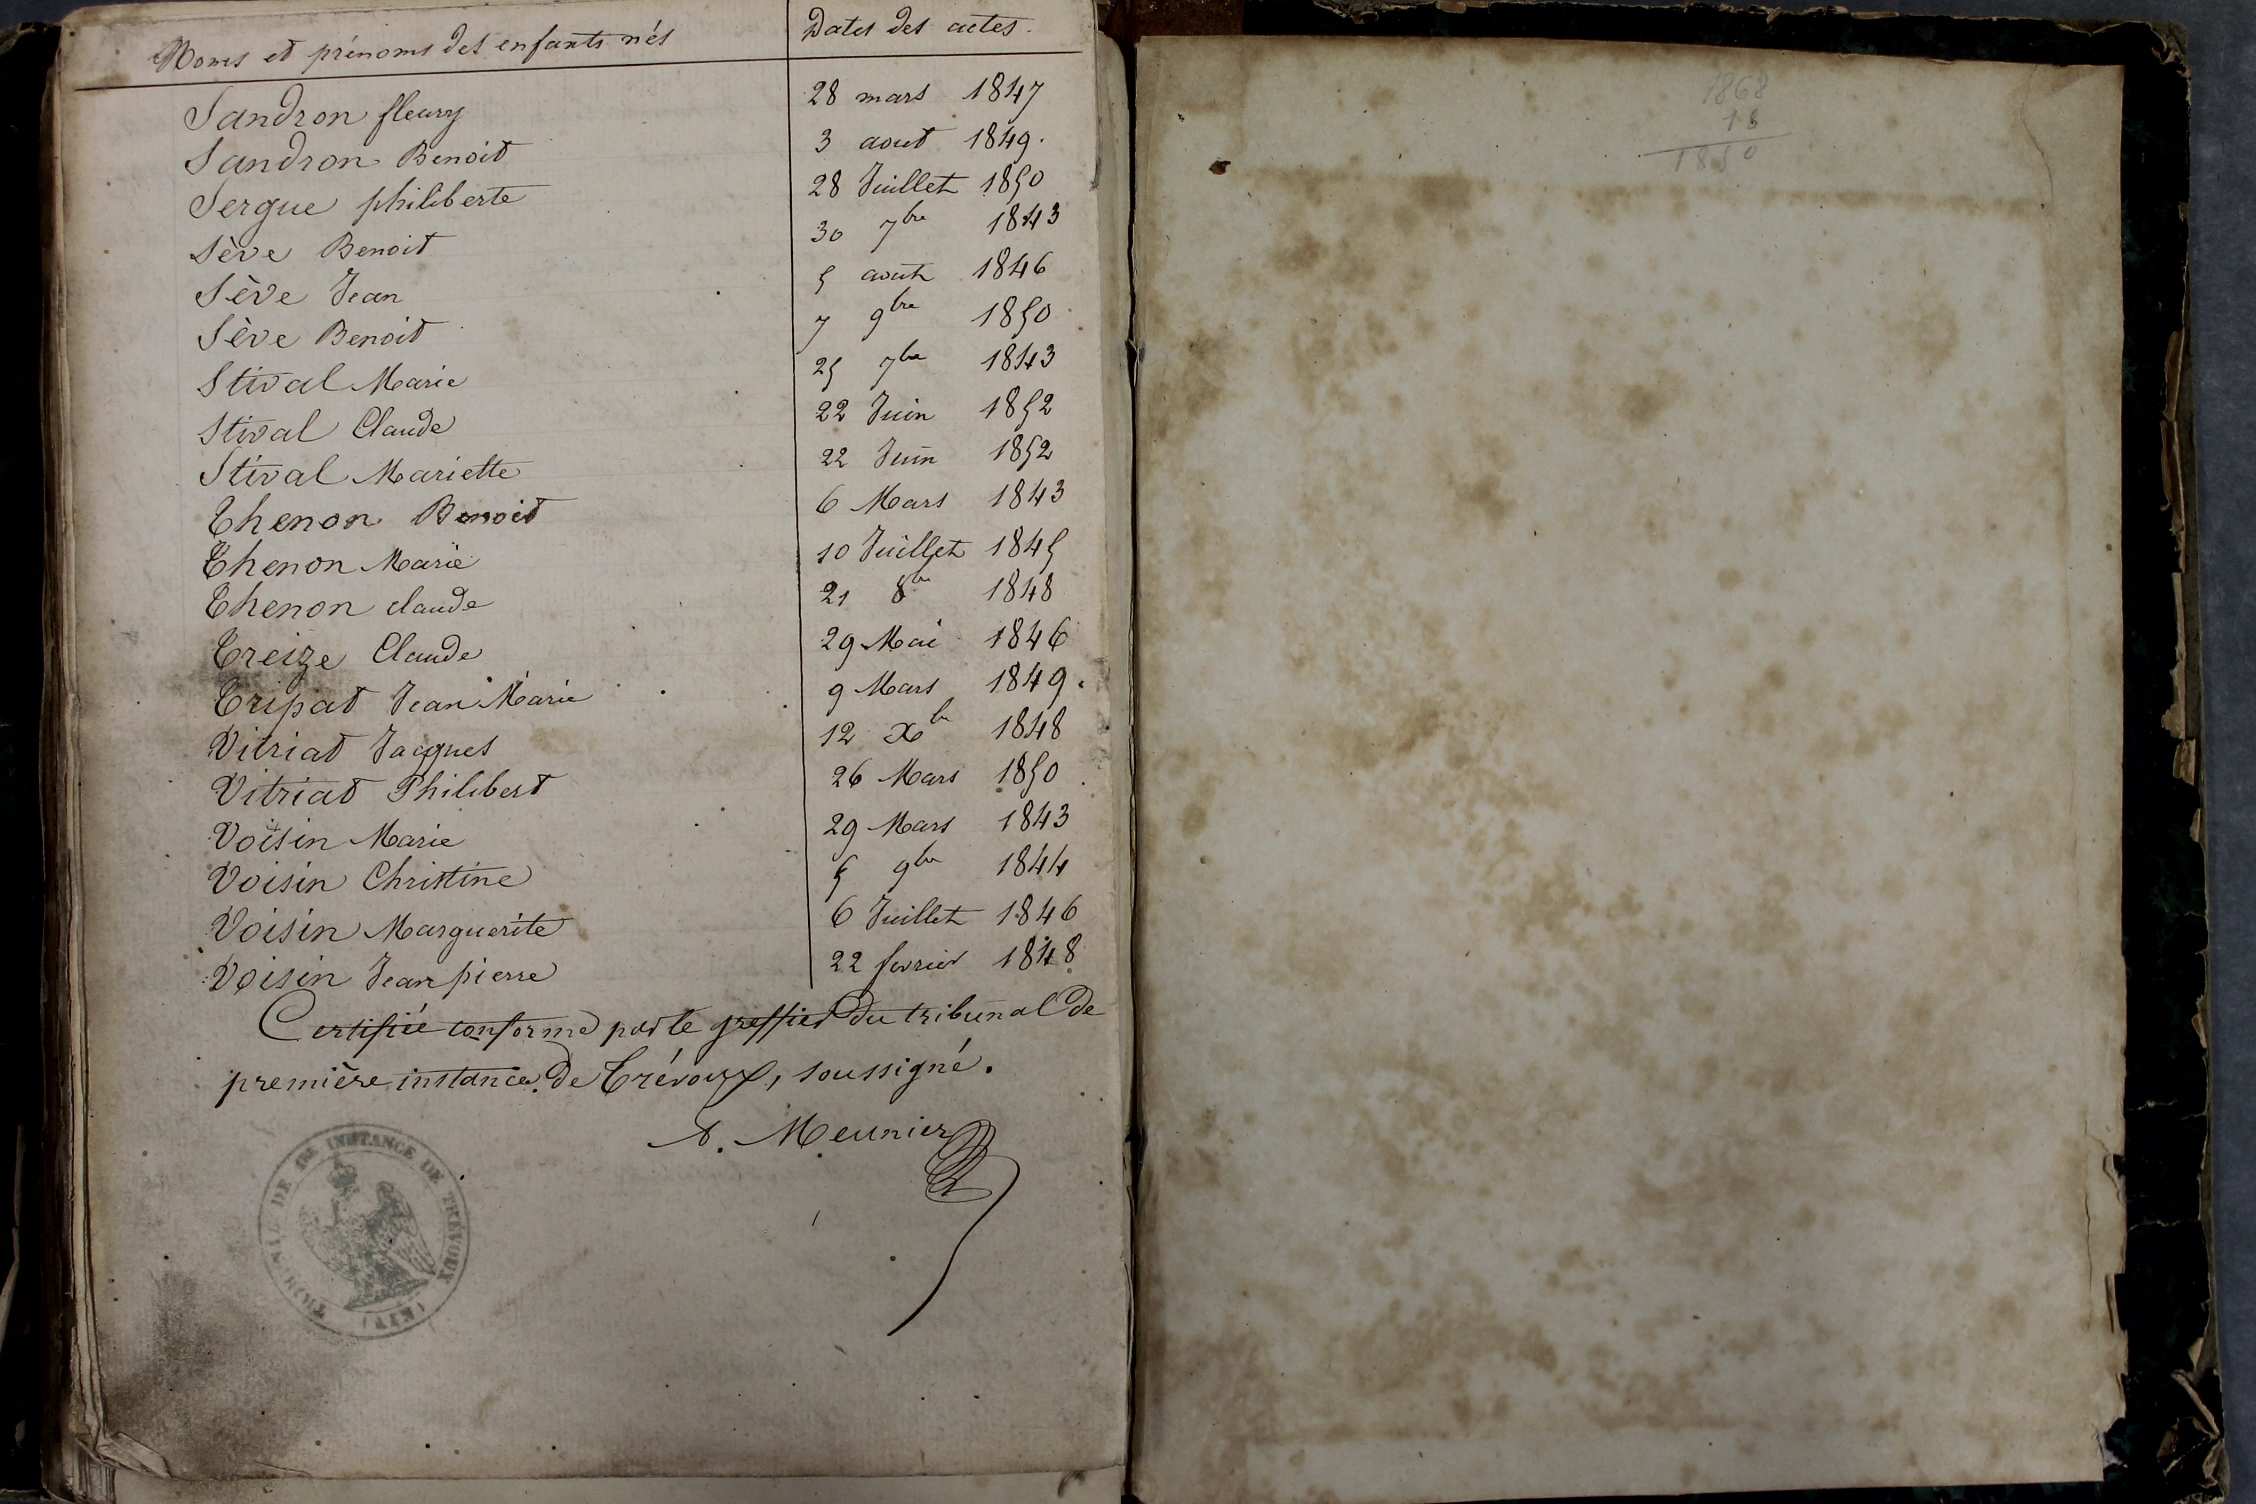 Noms et prénoms des enfants nés Dates des actes.
Sandron fleury 28 mars 1847
Sandron Benoit 3 aout 1849.
Sergue philiberte 28 Juillet 1850
Sève Benoit 30 7bre 1843
Sève Jean 5 aout 1846
Sève Benoit 7 9bre 1850
Stival Marie 25 7bre 1843
Stival Claude 22 Juin 1852
Stival Mariette 22 Juin 1852
Thenon Benoit 6 Mars 1843
Thenon Marie 10 Juillet 1845
Thenon claude 21 8bre 1848
Treize Claude 29 Mai 1846
Tripat Jean Marie 9 Mars 1849.
Vitriat Jacques 12 Xbre 1848
Vitriat Philibert 26 Mars 1850
Voisin Marie 29 Mars 1843
Voisin Christine 5 9bre 1844
Voisin Marguerite 6 Juillet 1846
Voisin Jean pierre 22 fevrier 1848
Certifié conforme par le greffier du tribunal de
première instance de Trévoux, soussigné.
A. Meunier
TRIBUNAL DE INSTANCE DE TRÉVOUX (AIN)
1868
18
1850